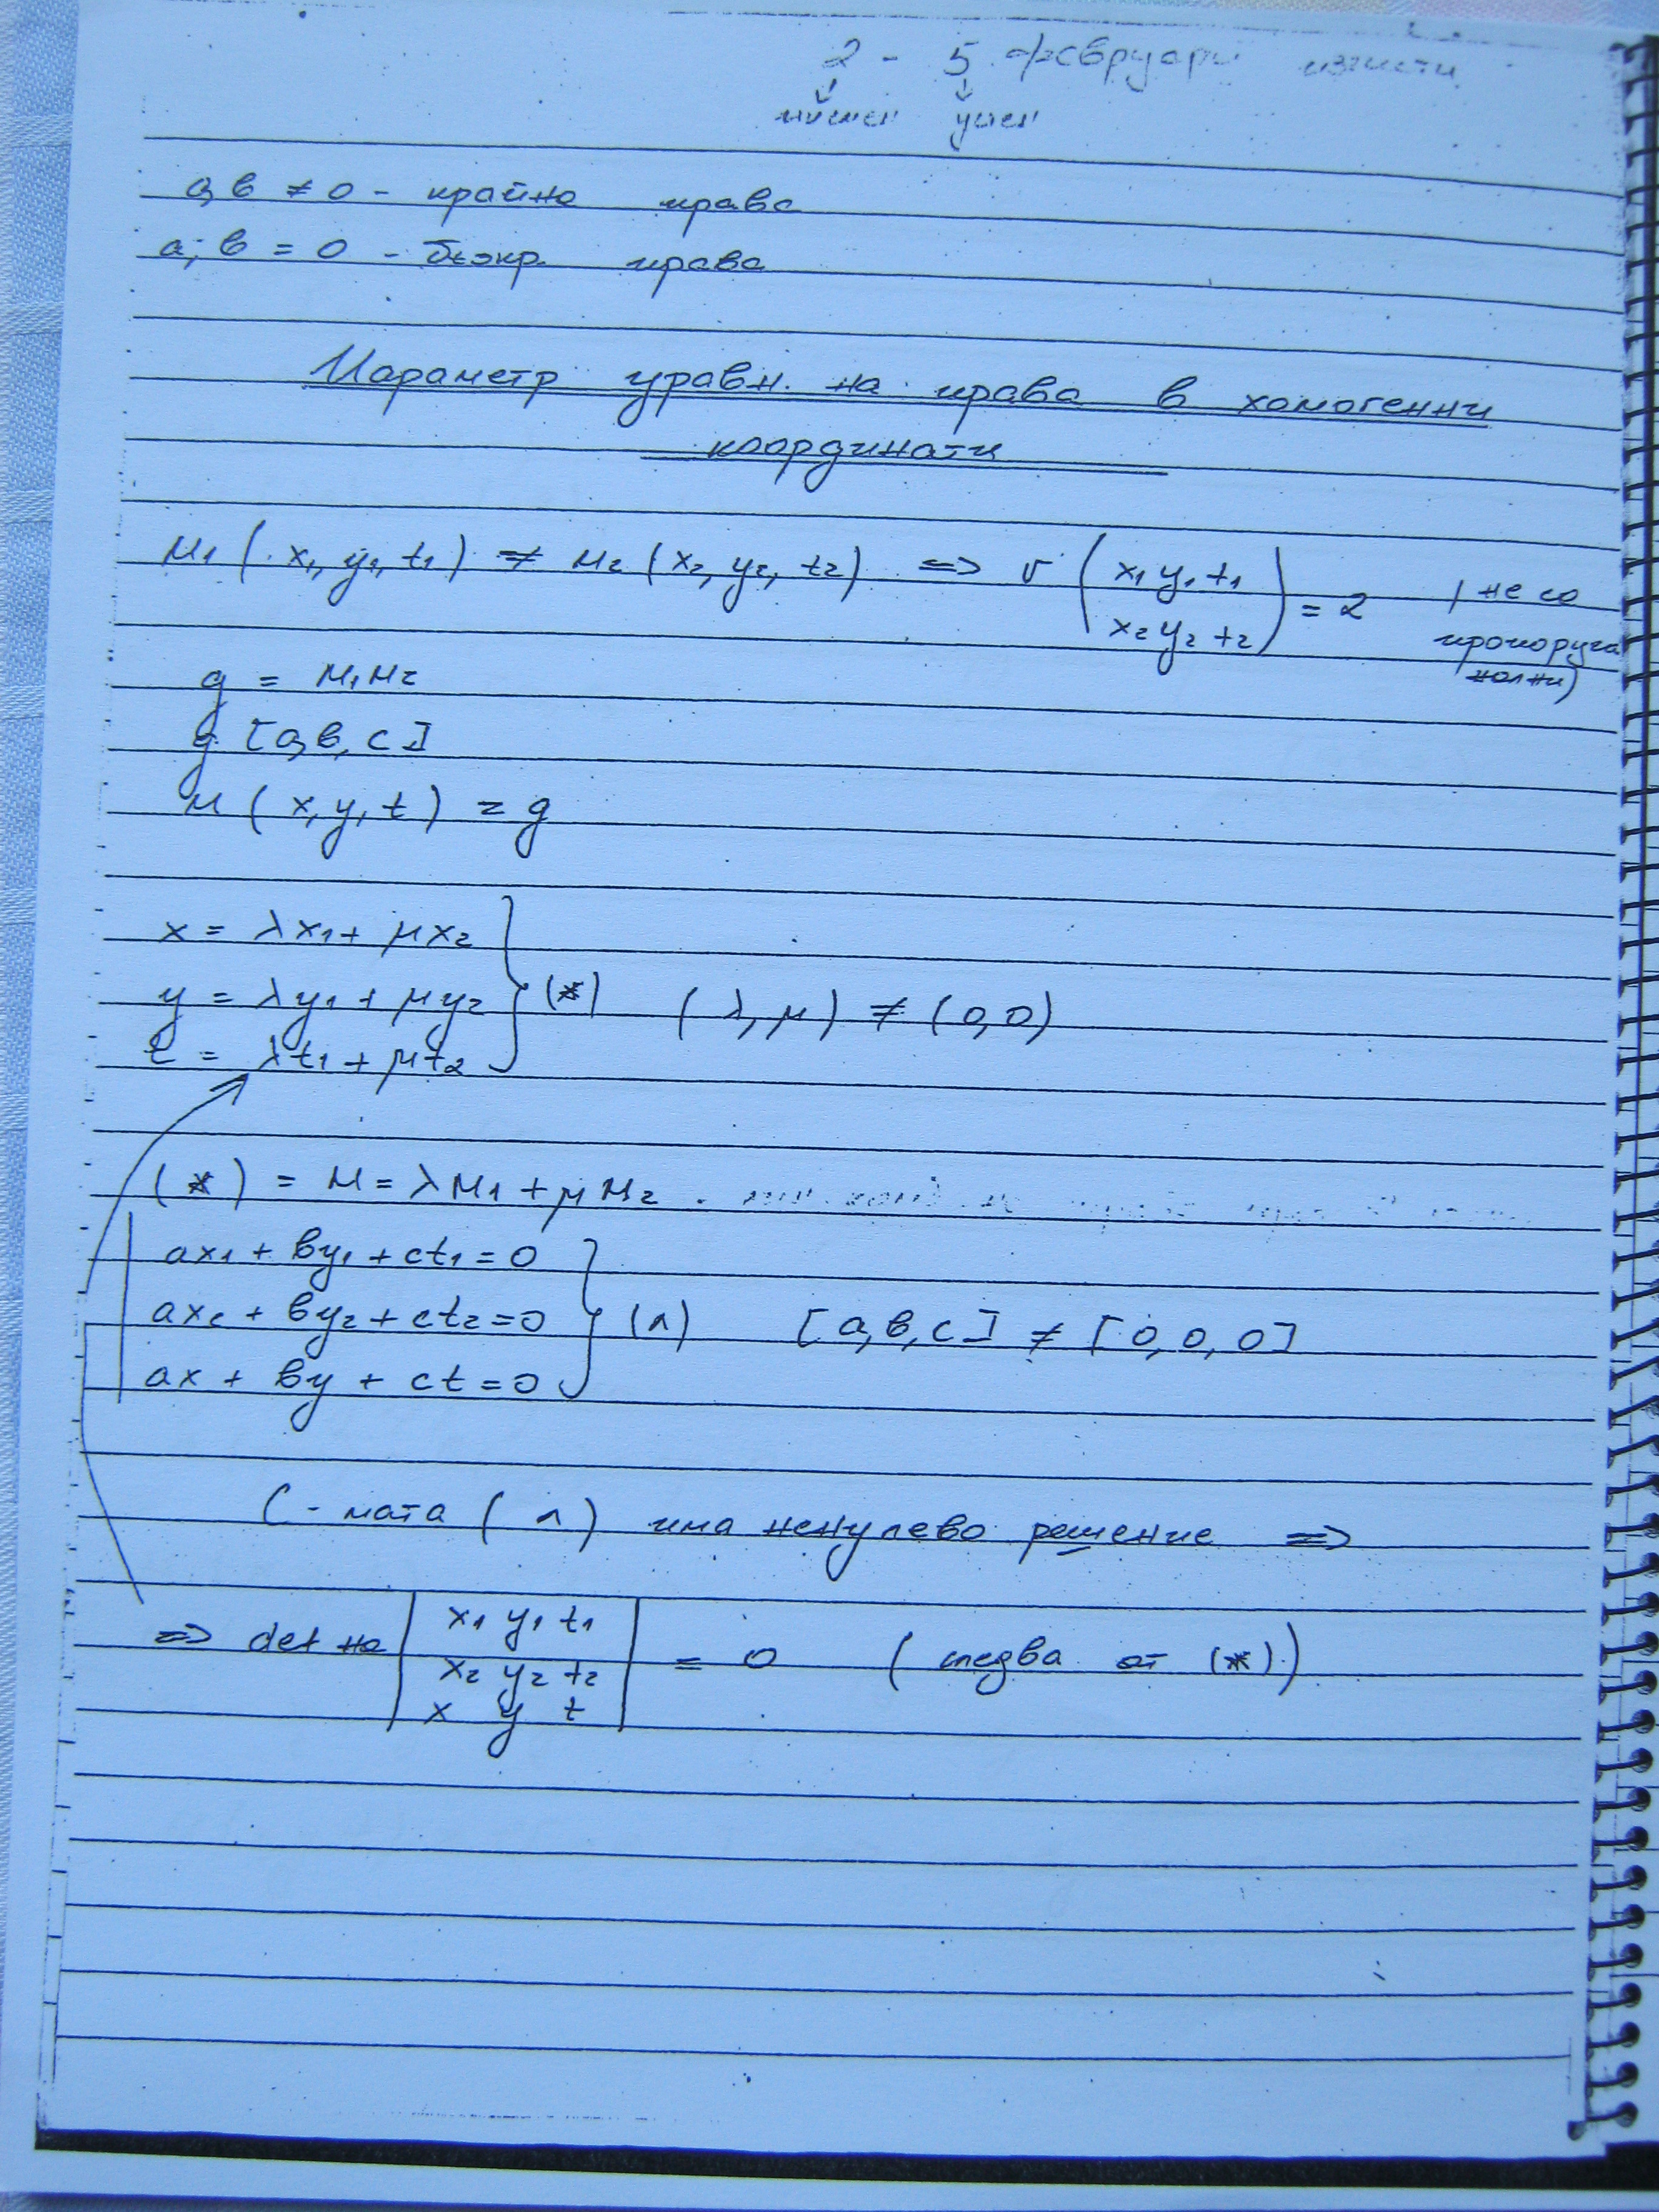 2 - 5 февруари изпити
писмен устен
a, в ≠ 0 - крайна права
a, в = 0 - безкр. права
Параметр уравн. на права в хомогенни
координати
M₁ (x₁, y₁, t₁) ≠ M₂ (x₂, y₂, t₂) => r (x₁ y₁ t₁
x₂ y₂ t₂) = 2 (не са
пропорцио
нални)
g = M₁M₂
g [a, в, c]
M (x, y, t) = g
x = λx₁ + μx₂
y = λy₁ + μy₂ } (*) (λ, μ) ≠ (0, 0)
t = λt₁ + μt₂
(*) = M = λM₁ + μM₂
ax₁ + вy₁ + ct₁ = 0
ax₂ + вy₂ + ct₂ = 0 } (1) [a, в, c] ≠ [0, 0, 0]
ax + вy + ct = 0
С-мата (1) има ненулево решение =>
=> det на | x₁ y₁ t₁
x₂ y₂ t₂ | = 0 (следва от (*))
x y t